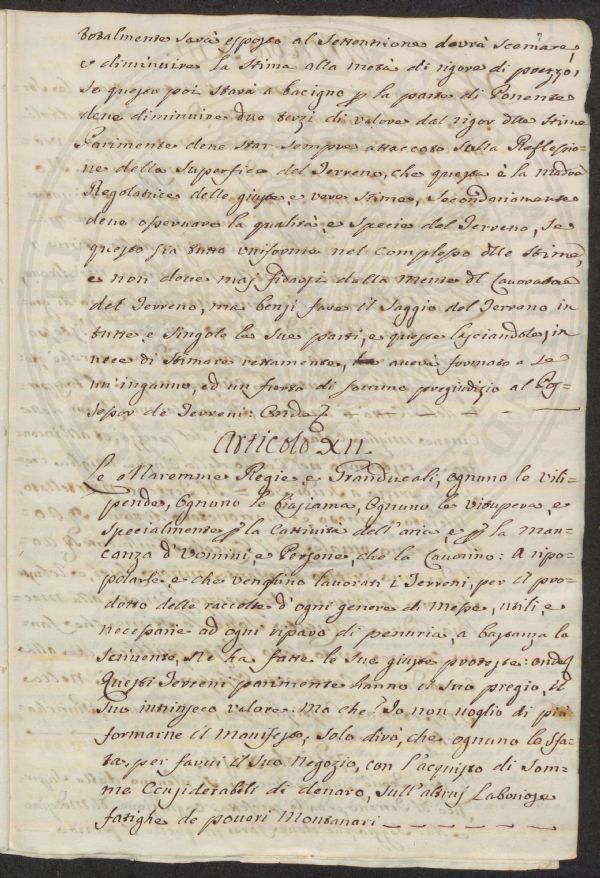 totalmente sarà esposto al Settentrione dovrà scemare,
e diminuire la stima alla metà di rigore di prezzo,
se questo poi starà a bacigno p la parte di Ponente
deue diminuire due terzi di valore dal rigor dlle stime
Parimente deue star sempre attaccato sulla Reflessio=
ne della superficie del Terreno, che questa è la madre
Regolatrice delle giuste, e vere stime, secondariamente
deue osseruare la qualità, e specie del Terreno, se
questo sia tutto uniforme nel complesso dlle stime,
e non deue maj fidarsi della mente dl Lauoratore
del Terreno, ma bensì fare il saggio del Terreno in
tutte, e singole le sue parti, e queste lasciandole, in
uece di stimare rettamente, auerà formato a se
un'inganno, ed un furto di sommo pregiudizio al Pos=
sessor de Terreni:
Articolo XII.
Le Maremme Regie, e Granducali, ognuno le vili=
pende, Ognuno le Biasiama, Ognuno le vitupera, e
specialmente p la Cattiuità dell'aria, e p la man=
canza d'Uomini, e Persone, che la Lauorino: A ripo=
polarle e che venghino lauorati i Terreni, per il pro=
dotto delle raccolte d'ogni genere di Messe, utili, e
necessarie ad ogni riparo di penuria, a bastanza lo
scriuente, Ne ha fatte le sue giuste proteste: onde
Questi Terreni parimente hanno il suo pregio, il
suo intrinseco valore: Ma che? Io non uoglio di più
formarne il Manifesto; solo dirò, che ognuno lo sfa=
ta, per farui il suo Negozio, con l'acquisto di som=
me Considerabili di denaro, sull'altruj Laboriose
fatighe de poueri Montanari